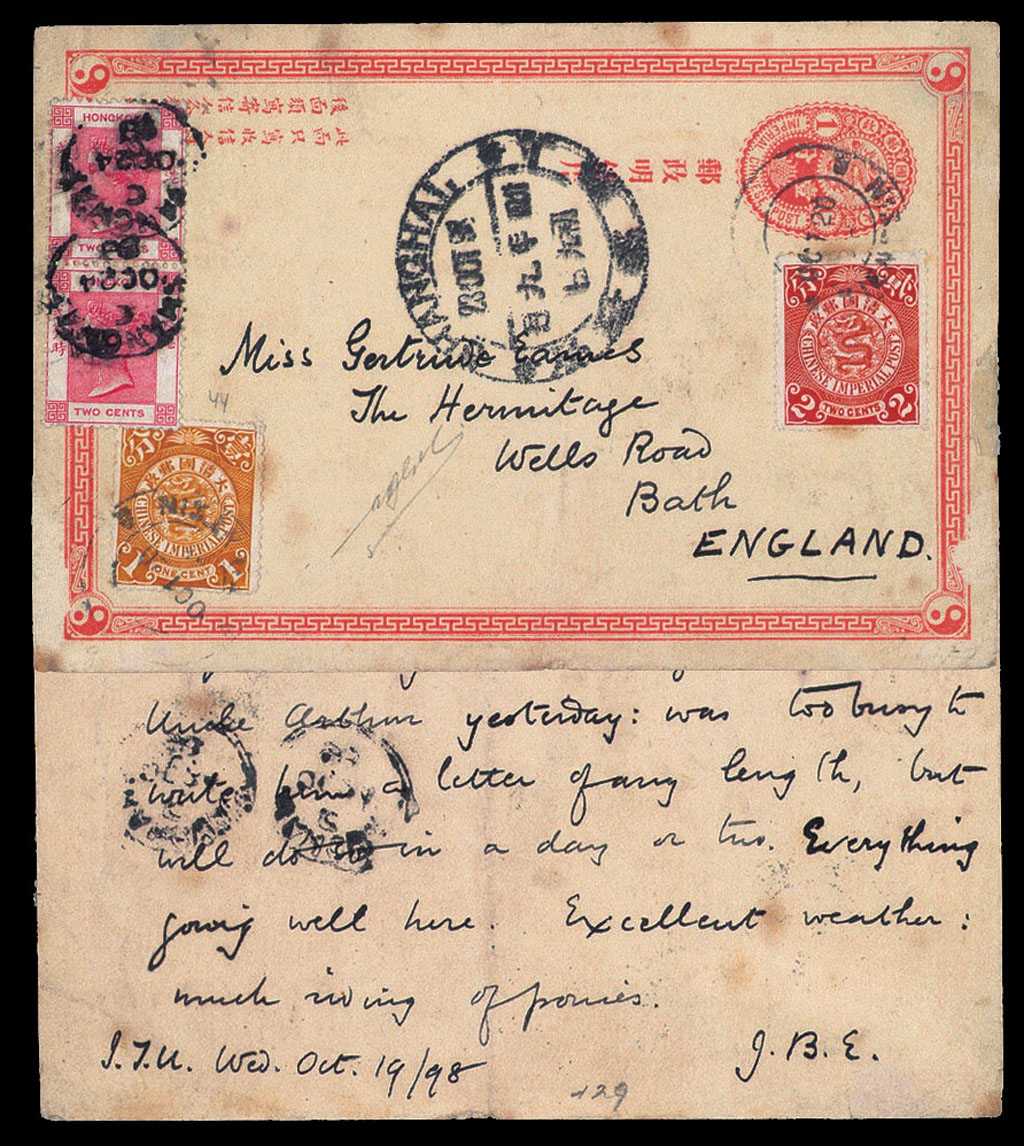 HONGKONG
TWO CENTS
HONGKONG
TWO CENTS
後面須寫寄信
此面只寫收信人
郵政明信片
CHINESE IMPERIAL POST
1
SHANGHAI
OCT 20
大清國郵政
CHINESE IMPERIAL POST
2 TWO CENTS 2
Miss Gertrude Eames
The Hermitage
Wells Road
Bath
ENGLAND.
44
壹分
大清國郵政
CHINESE IMPERIAL POST
1 ONE CENT 1
TIENTSIN
OCT
Uncle Arthur yesterday: was too busy to
write him a letter of any length, but
will do so in a day or two. Everything
going well here. Excellent weather:
much riding of ponies.
Wed. Oct. 19/98
J. B. E.
129